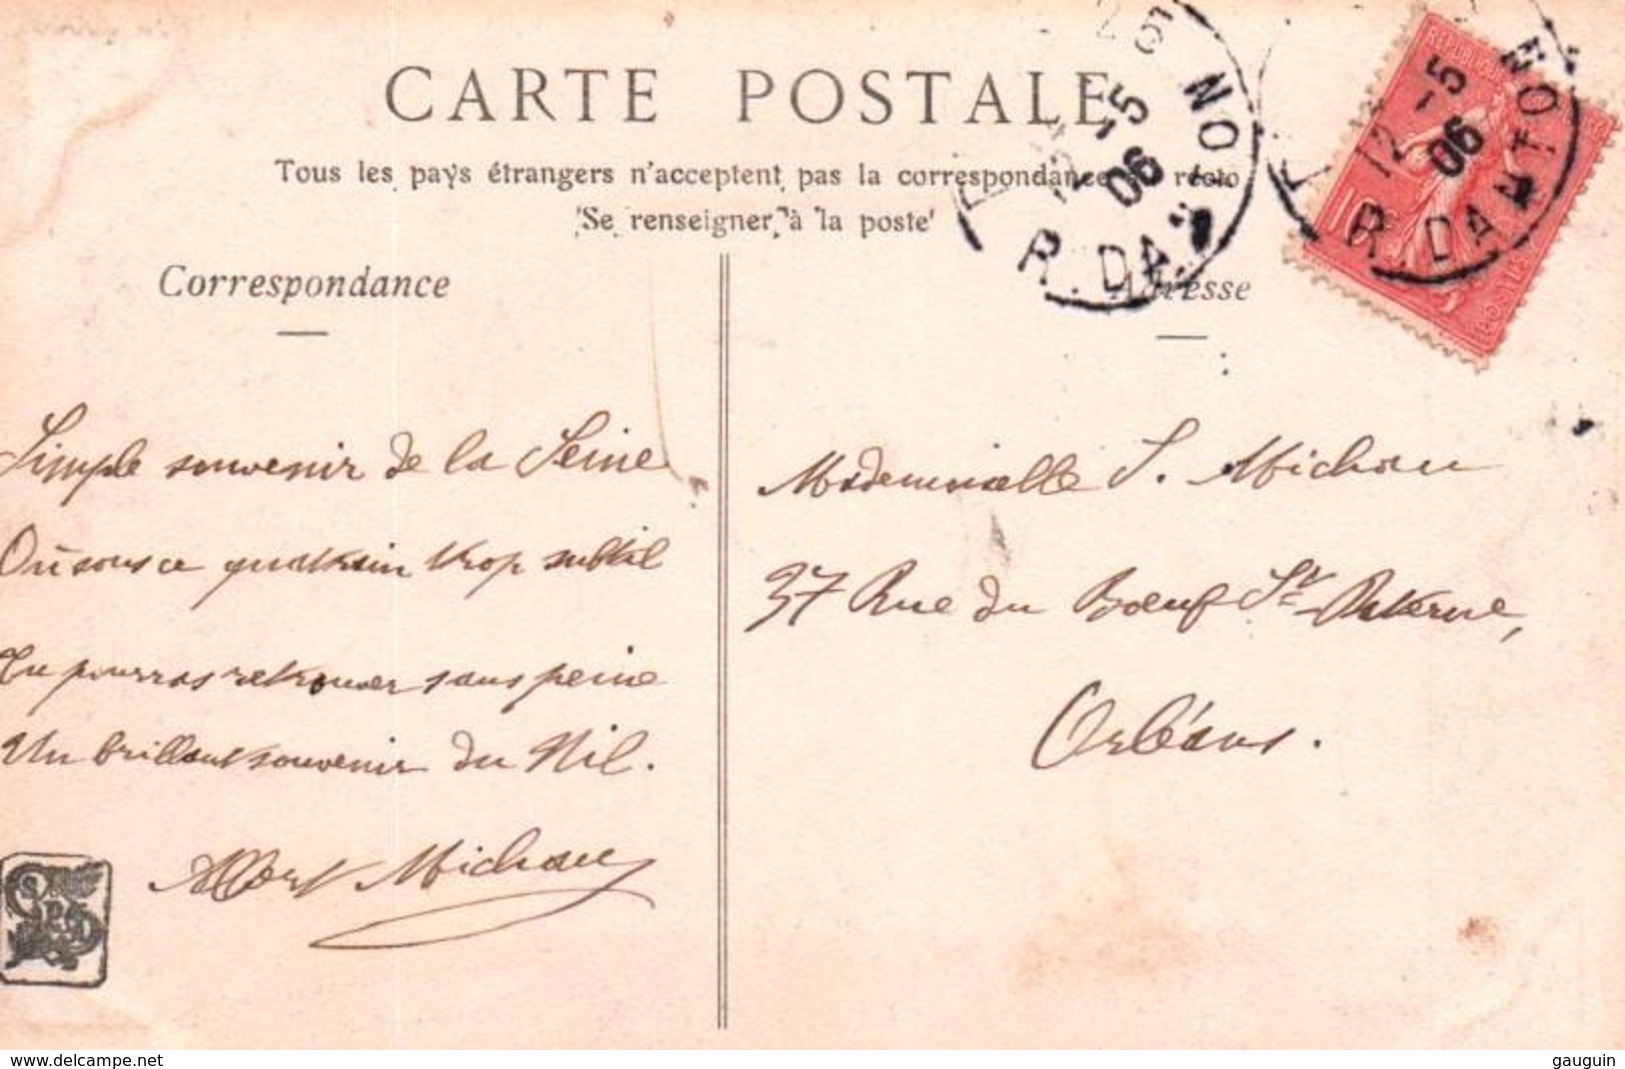 CARTE POSTALE
Tous les pays étrangers n'acceptent pas la correspondance au recto
'Se renseigner à la poste'
Correspondance
Adresse
25
12 -5
06
R. DANTON
12 -5
06
R. DANTON
REPUBLIQUE
10c
POSTES
Simple souvenir de la Seine
Où sous ce quatrain trop subtil
Tu pourras retrouver sans peine
Un brillant souvenir du Nil.
Albert Michau
Mademoiselle S. Michau
37 Rue du Bœuf St Paterne,
Orléans.
www.delcampe.net
gauguin